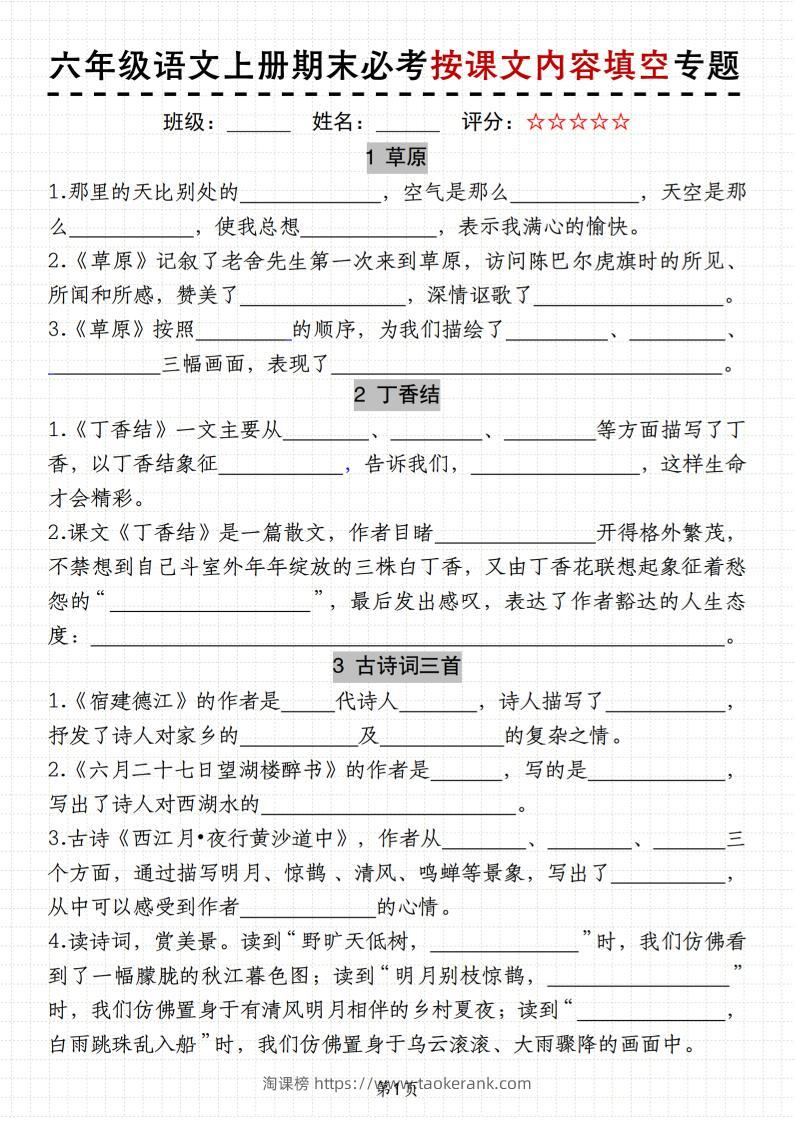 六年级语文上册期末必考按课文内容填空专题
班级：______ 姓名：______ 评分：☆☆☆☆☆
1 草原
1.那里的天比别处的____________，空气是那么____________，天空是那
么____________，使我总想____________，表示我满心的愉快。
2.《草原》记叙了老舍先生第一次来到草原，访问陈巴尔虎旗时的所见、
所闻和所感，赞美了______________，深情讴歌了________________。
3.《草原》按照________的顺序，为我们描绘了_________、________、
__________三幅画面，表现了__________________________________。
2 丁香结
1.《丁香结》一文主要从________、________、________等方面描写了丁
香，以丁香结象征___________，告诉我们，______________，这样生命
才会精彩。
2.课文《丁香结》是一篇散文，作者目睹______________开得格外繁茂，
不禁想到自己斗室外年年绽放的三株白丁香，又由丁香花联想起象征着愁
怨的“__________________”，最后发出感叹，表达了作者豁达的人生态
度：______________________________________________________。
3 古诗词三首
1.《宿建德江》的作者是_____代诗人_______，诗人描写了__________，
抒发了诗人对家乡的__________及___________的复杂之情。
2.《六月二十七日望湖楼醉书》的作者是______，写的是____________，
写出了诗人对西湖水的______________________。
3.古诗《西江月•夜行黄沙道中》，作者从_______、_______、______三
个方面，通过描写明月、惊鹊 、清风、鸣蝉等景象，写出了__________，
从中可以感受到作者____________的心情。
4.读诗词，赏美景。读到“野旷天低树，_____________”时，我们仿佛看
到了一幅朦胧的秋江暮色图；读到“明月别枝惊鹊，________________”
时，我们仿佛置身于有清风明月相伴的乡村夏夜；读到“_____________，
白雨跳珠乱入船”时，我们仿佛置身于乌云滚滚、大雨骤降的画面中。
淘课榜 https://www.taokerank.com
第1页